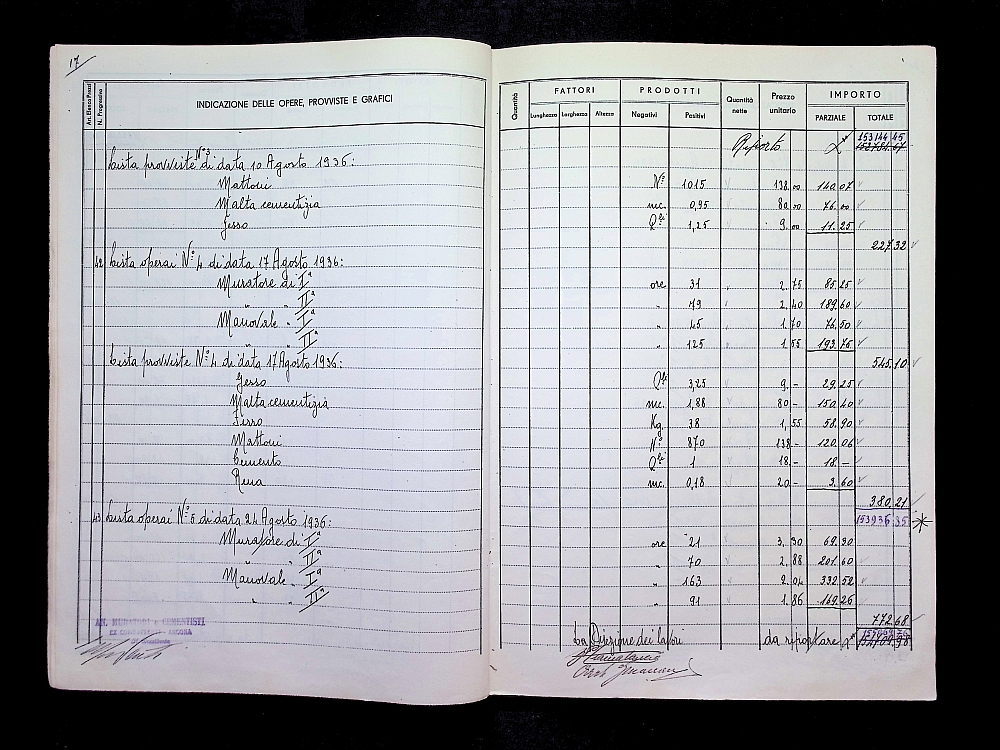 17
An. Elenco Prezzi
N. Progressivo
INDICAZIONE DELLE OPERE, PROVVISTE E GRAFICI
Quantità
FATTORI
Lunghezza Larghezza Altezza
PRODOTTI
Negativi Positivi
Quantità nette
Prezzo unitario
IMPORTO
PARZIALE TOTALE
Riporto 153144 45
Lista provviste N°3 di data 10 Agosto 1936:
Mattoni N° 1015 138.00 140.07
Malta cementizia mc. 0,95 80.00 76.00
Gesso Q.li 1,25 9.00 11.25
227.32
42 Lista operai N° 4 di data 17 Agosto 1936:
Muratore di Iª ore 31 2.75 85.25
" " IIª " 79 2.40 189.60
Manovale " Iª " 45 1.70 76.50
" " IIª " 125 1.55 193.75
545.10
Lista provviste N° 4 di data 17 Agosto 1936:
Gesso Q.li 3,25 9.- 29.25
Malta cementizia mc. 1,88 80- 150.40
Ferro Kg. 38 1,55 58.90
Mattoni N° 870 138.- 120.06
Cemento Q.li 1 18.- 18.-
Rena mc. 0,18 20- 3.60
380.21
153936 35
43 Lista operai N° 5 di data 24 Agosto 1936:
Muratore di Iª ore 21 3.30 69.30
" " IIª " 70 2.88 201.60
Manovale " Iª " 163 2.04 332.52
" " IIª " 91 1.86 169.26
772.68
AN. MURATORI e CEMENTISTI
EX COMBATTENTI - ANCONA
La Direzione dei lavori da riportare